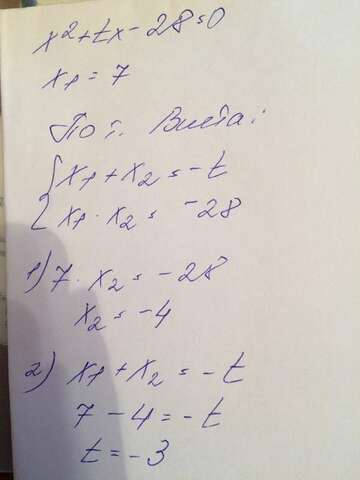 x² + tx - 28 = 0
x₁ = 7
По т. Виета:
{ x₁ + x₂ = -t
x₁ · x₂ = -28
1) 7 · x₂ = -28
x₂ = -4
2) x₁ + x₂ = -t
7 - 4 = -t
t = -3